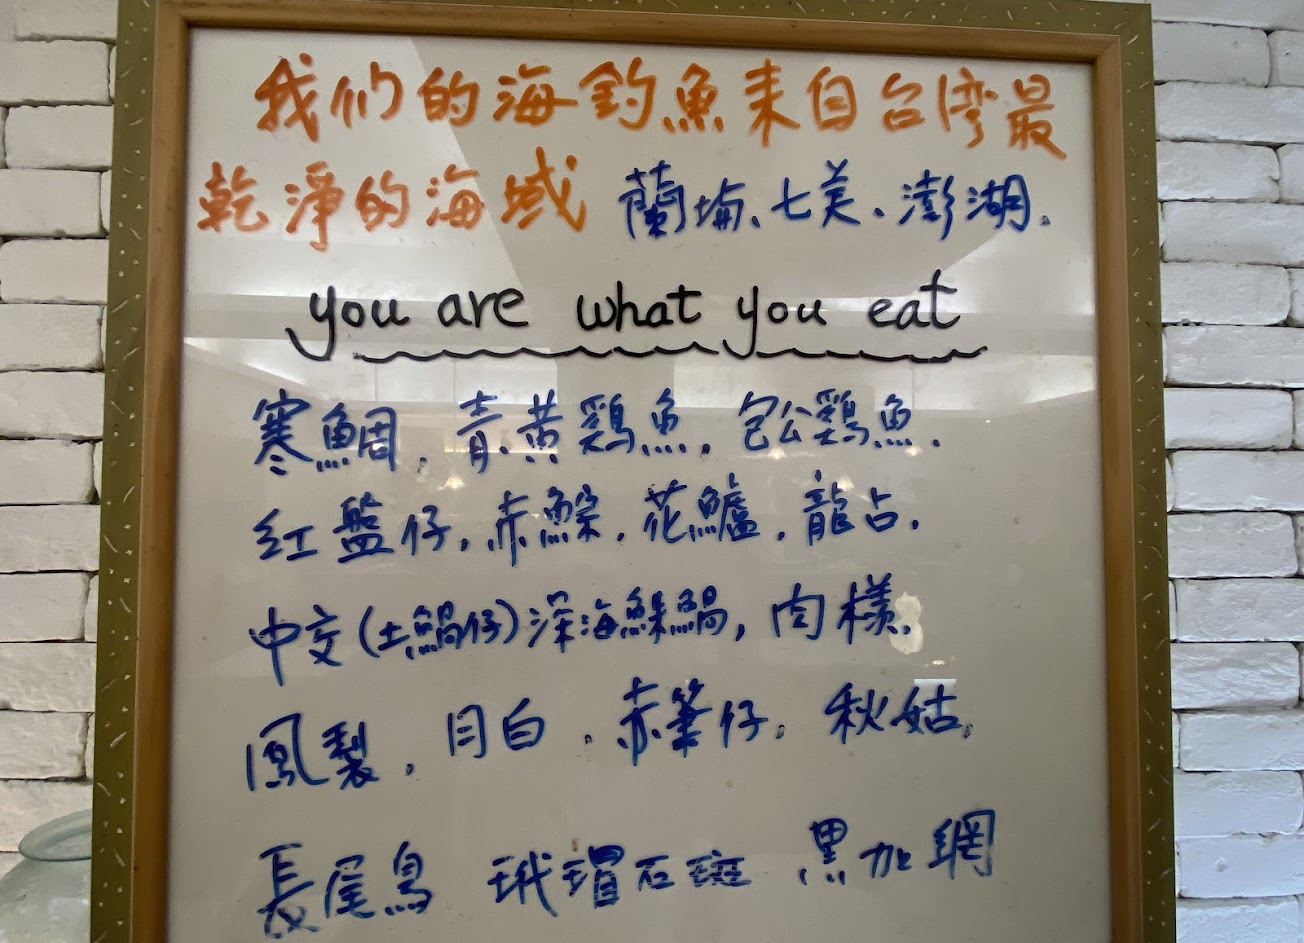 我们的海釣魚来自台湾最
乾淨的海域 蘭埔、七美、澎湖.
you are what you eat
寒鯛. 青黃鷄魚. 包公鷄魚.
红盤仔. 赤鯮. 花鱸. 龍占.
中交(土鍋仔)深海鯠鯛, 肉樣.
鳳製. 目白. 赤筆仔. 秋姑.
長尾鳥 玳瑁石斑 黑加網